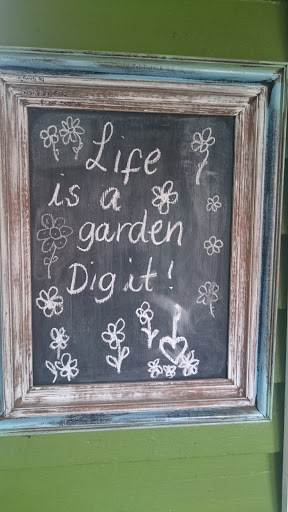 Life
is a
garden
Dig it!